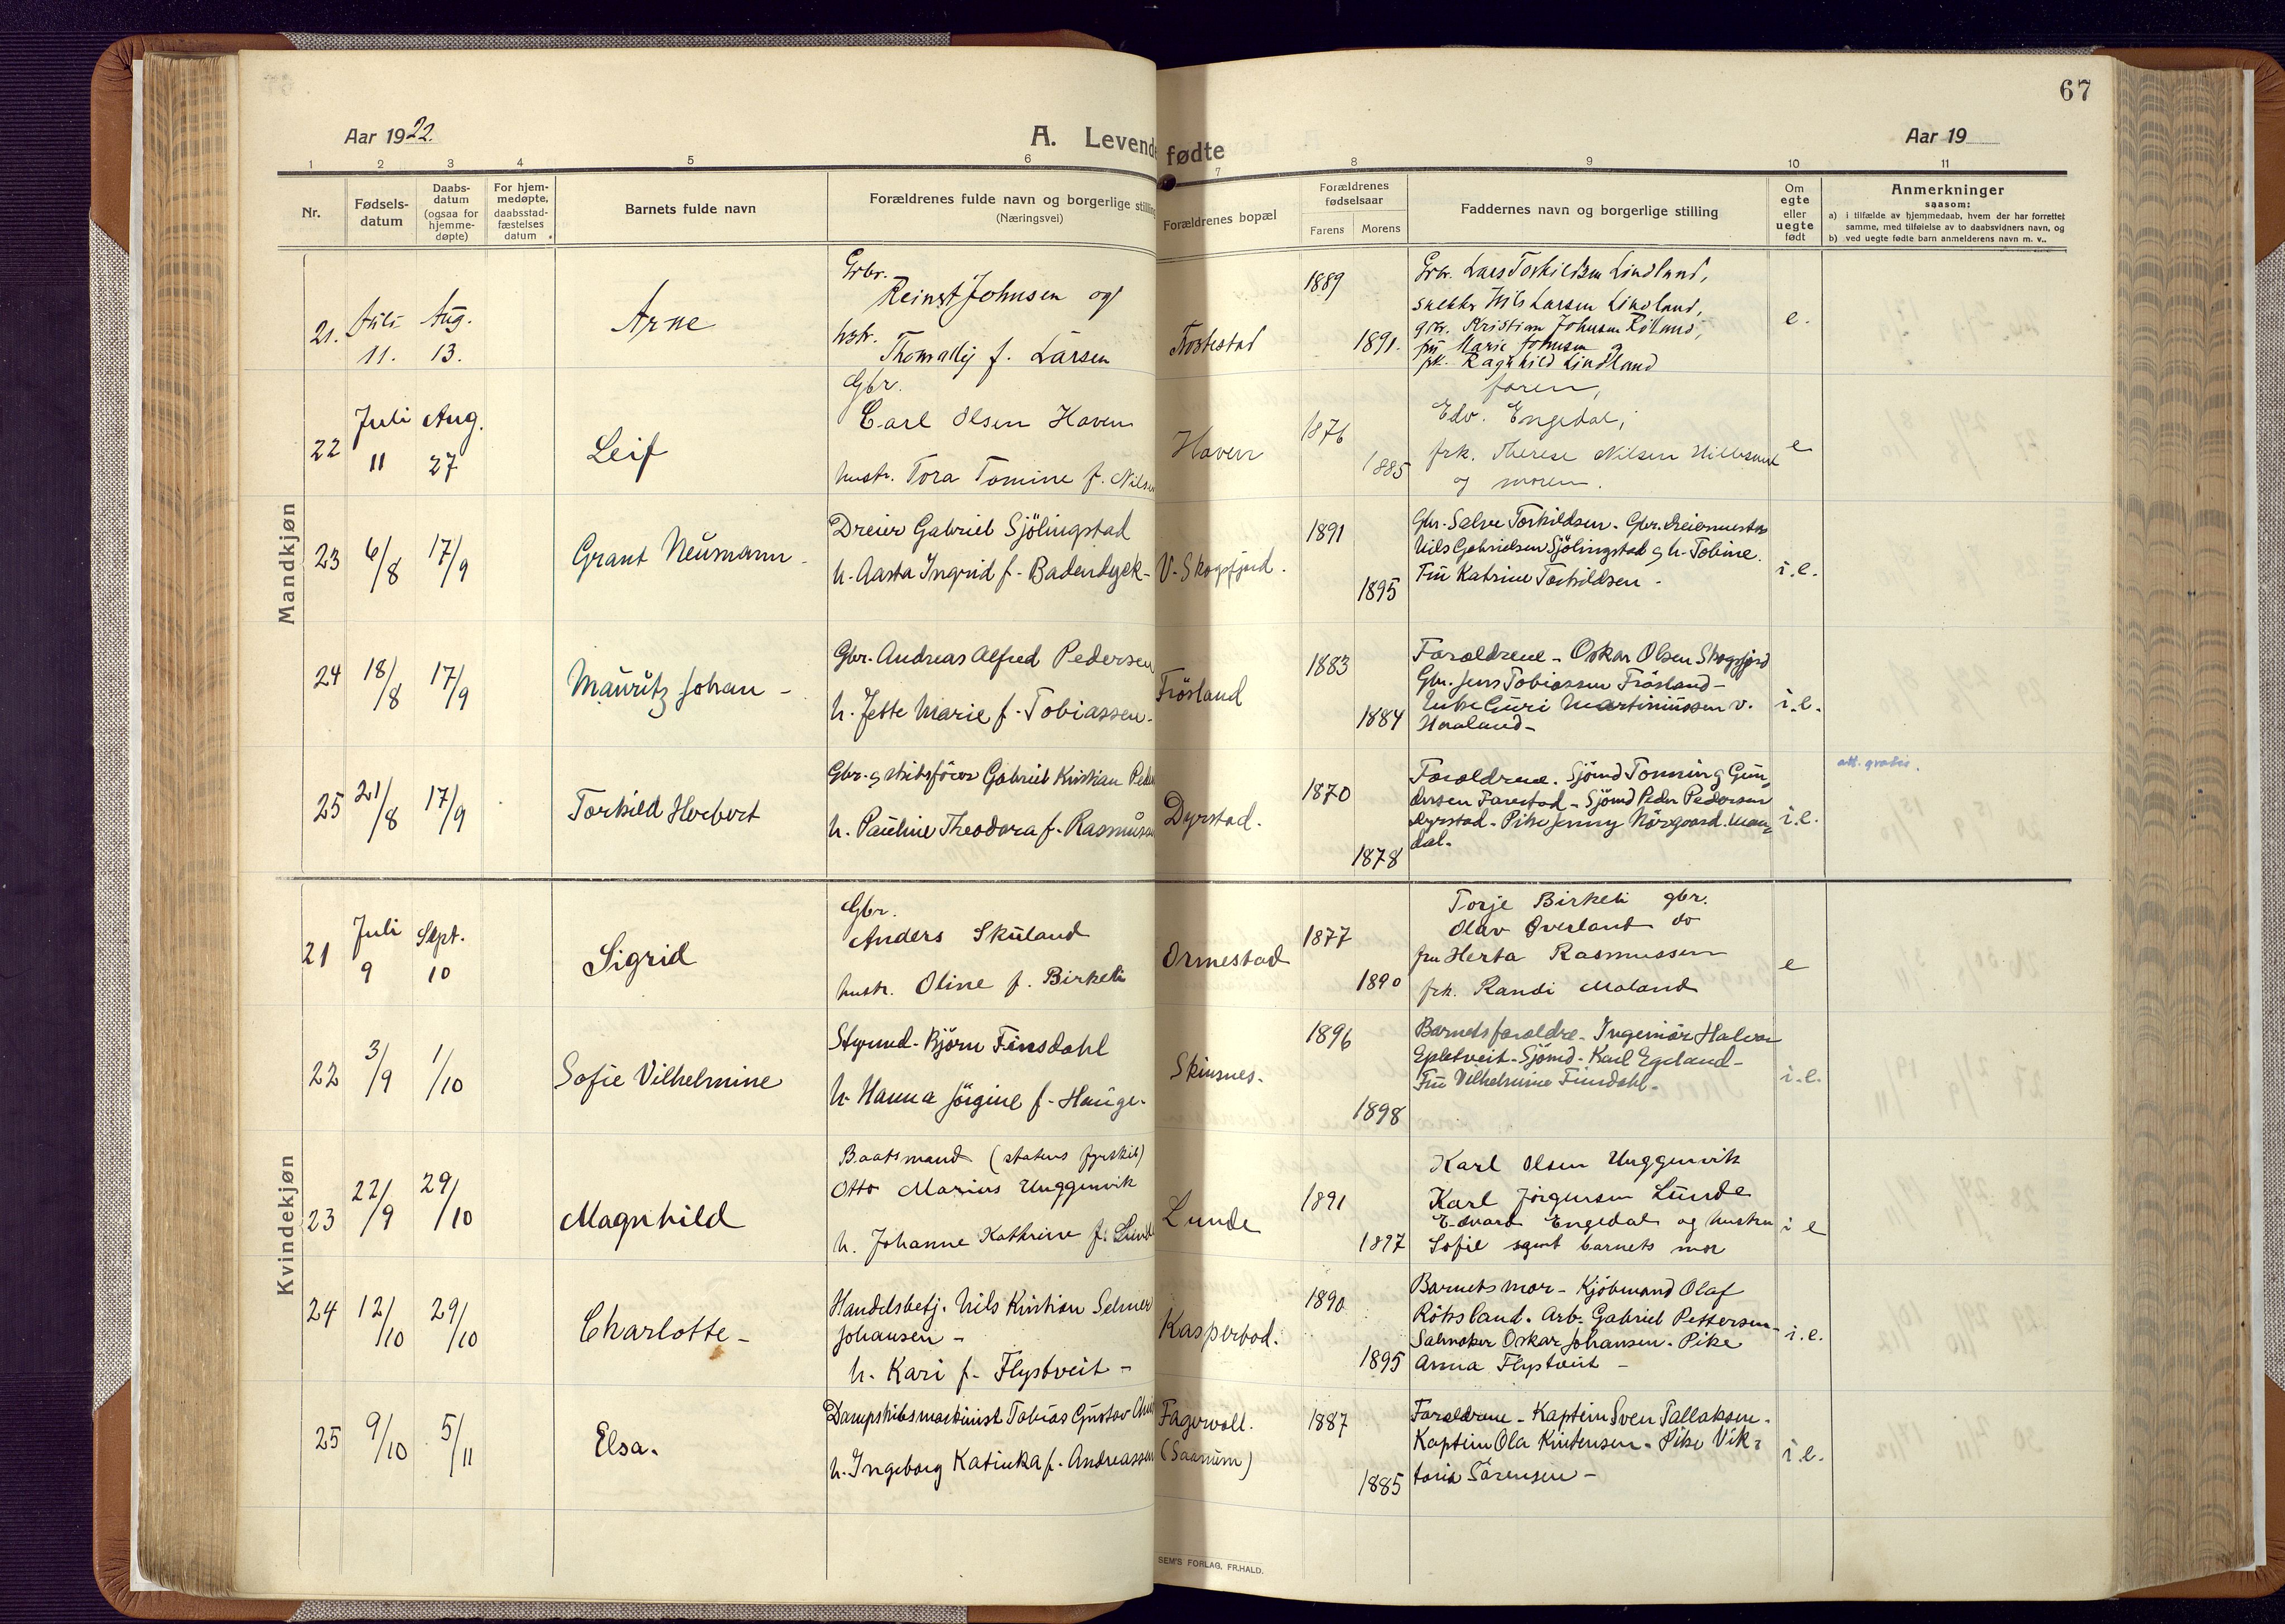 67
Aar 1922.
A. Levende fødte
Aar 19
1 2 3 4 5 6 7 8 9 10 11
Nr.
Fødsels-
datum
Daabs-
datum
(ogsaa for
hjemme-
døpte)
For hjem-
medøpte,
daabsstad-
fæstelses
datum.
Barnets fulde navn
Forældrenes fulde navn og borgerlige stilling
(Næringsvei)
Forældrenes bopæl
Forældrenes
fødselsaar
Farens Morens
Faddernes navn og borgerlige stilling
Om
egte
eller
uegte
født
Anmerkninger
saasom:
a) i tilfælde av hjemmedaab, hvem der har forrettet
samme, med tilføielse av to daabsvidners navn, og
b) ved uegte fødte barn anmelderens navn m. v..
Mandkjøn
21. Juli Aug.
11. 13.
Arne
Grbr.
Reinert Johnsen og
hstr.
Thomally f. Larsen
1889
1891.
Grbr. Lars Torkildsen Lindland,
snekker Nils Larsen Lindland,
gbr. Kristian Johnsen
fru Marie Johnsen
frk. Ragnhild Lindland
e.
22
Juli Aug.
11 27
Leif
Gbr.
Carl Olsen Haven
hustr. Tora Tomine f. Nilsen
Haven
1876
1885
faren,
Edv. Engedal,
frk. Therese Nilsen
og moren.
e
23 6/8 17/9
Grant Neumann
Dreier Gabriel Sjölingstad
h. Aasta Ingrid f. Badendyck-
V. Skogsfjord.
1891
1895
Gbr. Salve Torkildsen. Gbr.
Nils Gabrielsen Sjölingstad og h. Tobine.
Frü Katrine Torkildsen.
i.e.
24 18/8 17/9
Mauritz Johan -
Gbr. Andreas Alfred Pedersen
h. Jette Marie f. Tobiassen.
Frösland
1883
1884
Foraeldrene - Oskar Olsen Skogsfjord
Gbr. Jens Tobiassen Frösland-
Enke Guri Martiniussen v.
Haaland-
i.e.
25 21/8 17/9
Torkild Herbert
Gbr. og skibsförer Gabriel Kristian Peder
h. Pauline Theodora f. Rasmussen
Dyrstad.
1870
1878
Foraeldrene. Sjömd Tonning Gun-
dersen Farestad - Sjömd Peder Pedersen
Dyrstad - Pike Jenny Nörgaard. Man-
dal.
i.e.
att. gratis.
Kvindekjøn
21
Juli Sept.
9 10
Sigrid
Gbr.
Anders Skuland
hustr. Oline f. Birkeli
Ormestad
1877
1890
Torje Birkeli gbr.
Olav Överland do
fru Herta Rasmussen
frk. Randi Moland
e
22 3/9 1/10
Sofie Vilhelmine
Styrmd. Björn Finsdahl
h. Hanna Jörgine f. Hauge.
Skinsnes.
1896
1898
Barnets foraeldre - Ingeniör Halvor
Epletveit - Sjömd. Karl Egeland -
Frü Vilhelmine Finsdahl.
i.e.
23 22/9 29/10
Magnhild
Baatsmand (statens fyrskib)
Otto Marius Unggenvik
h. Johanne Kathrine f. Lunde
Lunde
1891
1897
Karl Olsen Unggenvik
Karl Jörgensen Lunde
Edvard Engedal og hustru
Sofie samt barnets mor
i e
24 12/10 29/10
Charlotte -
Handelsbetj. Nils Kristian Selmer
Johansen -
h. Kari f. Flystveit -
Kasperbod.
1890
1895
Barnets mor - Kjöbmand Olaf
Röksland. Arb. Gabriel Pettersen -
Salmaker Oskar Johansen. Pike
Anna Flystveit -
i.e.
25 9/10 5/11
Elsa.
Dampskibsmaskinist Tobias Gustav
h. Ingeborg Katinka f. Andreassen
Fagervoll.
(Saanum)
1887
1885
Foraeldrene - Kaptein Sven Tallaksen.
Kaptein Ola Kristensen. Pike Vik-
toria Sörensen -
i.e.
SEM'S FORLAG, FR.HALD.